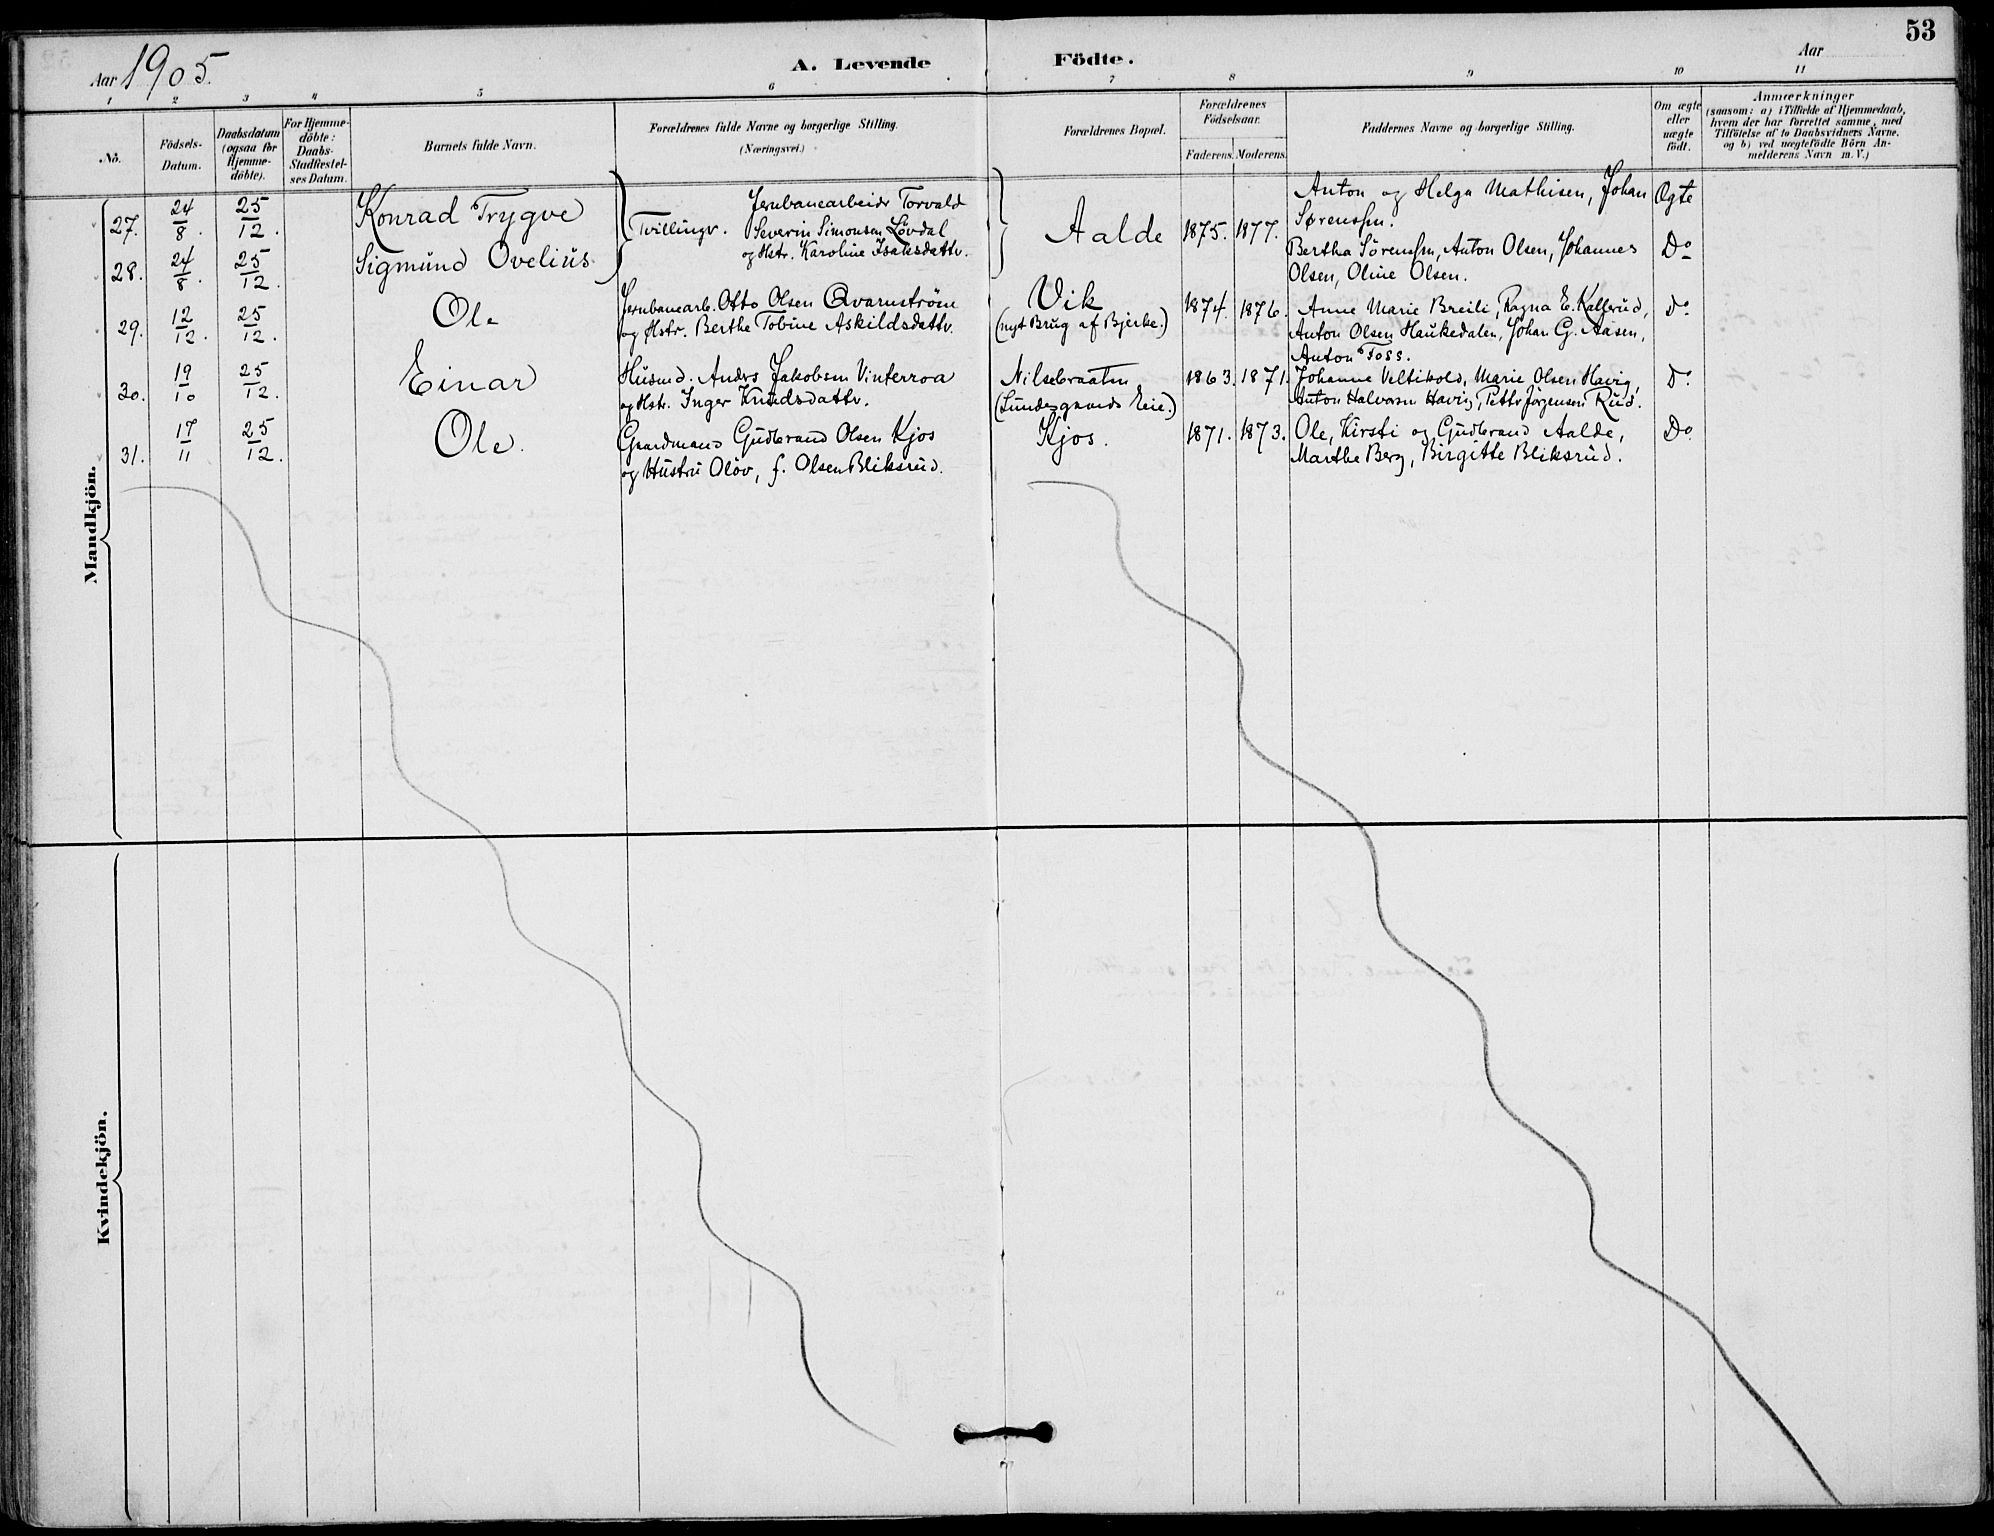 53
Aar 1905.
A. Levende Födte.
Aar
1 2 3 4 5 6 7 8 9 10 11
No.
Födsels-
Datum.
Daabsdatum
(ogsaa for
Hjemme-
döbte).
For Hjemme-
döbte:
Daabs-
Stadfæstel-
ses Datum.
Barnets fulde Navn.
Forældrenes fulde Navne og borgerlige Stilling.
(Næringsvei.)
Forældrenes Bopæl.
Forældrenes
Födselsaar.
Faderens. Moderens.
Faddernes Navne og borgerlige Stilling.
Om ægte
eller
uægte
födt.
Anmærkninger
(saasom: a) i Tilfælde af Hjemmedaab,
hvem der har forrettet samme, med
Tilföielse af to Daabsvidners Navne.
og b) ved uægtefödte Börn An-
melderens Navn m. V.)
Mandkjön.
27. 24/8. 25/12. Konrad Trygve
28. 24/8. 25/12. Sigmund Ovelius
Tvillingr.
Jernbanearbeidr Torvald
Severin Simonsen Lövdal
og Hstr. Karoline Isaksdattr.
Aalde 1875. 1877.
Anton og Helga Mathisen, Johan
Sørenssen.
Ægte
Bertha Sörenssen, Anton Olsen, Johannes
Olsen, Oline Olsen.
Do
29. 12/12. 25/12. Ole
Jernbanearb. Otto Olsen Qvarnström
og Hstr. Berthe Tobine Askildsdattr.
Vik
(nyt Brug af Bjerke.)
1874. 1876.
Anne Marie Breili, Ragna E. Kallerud,
Anton Olsen Haukedalen, Johan G. Aasen,
Anton Foss.
Do
30. 19/10 25/12. Einar
Husmd. Anders Jakobsen Vinterroa
og Hstr. Inger Knudsdattr.
Nilsebraaten
(Lundesgaards Eie.)
1863. 1871.
Johanne Veltikold, Marie Olsen Havig,
Anton Halvorsen Havig, Pettr Jørgensen Rud.
Do
31. 17/11 25/12. Ole.
Gaardmand Gudbrand Olsen Kjos
og Hustru Olöv, f. Olsen Bliksrud.
Kjos.
1871. 1873.
Ole, Kirsti og Gudbrand Aalde,
Marthe Berg, Birgitte Bliksrud.
Do
Kvindekjön.